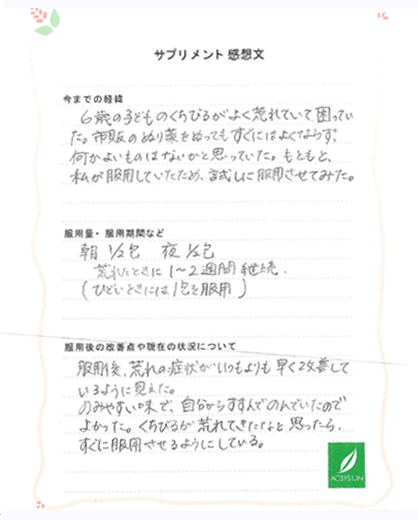 サプリメント 感想文
今までの経緯
6歳の子どものくちびるがよく荒れていて困ってい
た。市販のぬり薬をぬってもすぐにはよくならず、
何かよいものはないかと思っていた。もともと、
私が服用していたため、試しに服用させてみた。
服用量・服用期間など
朝 1/2包 夜 1/2包
荒れたときに 1～2週間継続.
(ひどいときには1包を服用)
服用後の改善点や現在の状況について
服用後、荒れの症状がいつもよりも早く改善して
いるように見えた。
のみやすい味で、自分からすすんでのんでいたので
よかった。くちびるが荒れてきたなと思ったら、
すぐに服用させるようにしている。
ACSYS UN